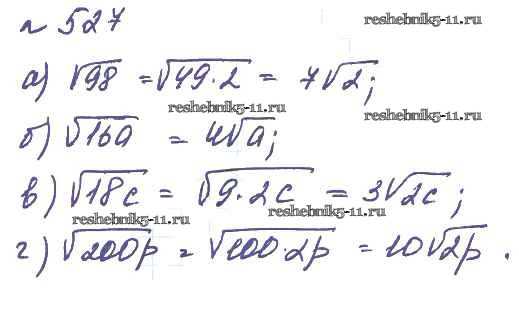 № 527
reshebnik5-11.ru
а) √98 = √49·2 = 7√2;
reshebnik5-11.ru
reshebnik5-11.ru
б) √16a = 4√a;
в) √18c = √9·2c = 3√2c;
reshebnik5-11.ru
reshebnik5-11.ru
г) √200p = √100·2p = 10√2p.